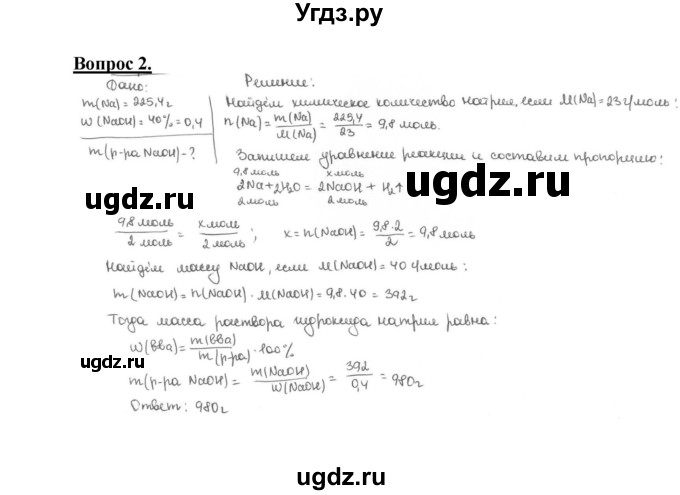 Угдз.ру
Вопрос 2.
Дано:
m(Na)=225,4г
w(NaOH)=40%=0,4
m(р-ра NaOH)-?
Решение:
Найдём химическое количество натрия, если M(Na)=23г/моль:
n(Na)=m(Na)/M(Na)=225,4/23=9,8моль.
Запишем уравнение реакции и составим пропорцию:
9,8моль x моль
2Na+2H₂O=2NaOH+H₂↑
2моль 2моль
9,8моль/2моль=x моль/2моль; x=n(NaOH)=9,8·2/2=9,8моль
Найдём массу NaOH, если M(NaOH)=40г/моль:
m(NaOH)=n(NaOH)·M(NaOH)=9,8·40=392г
Тогда масса раствора гидроксида натрия равна:
w(вва)=m(вва)/m(р-ра)·100%
m(р-ра NaOH)=m(NaOH)/w(NaOH)=392/0,4=980г
Ответ: 980г
ugdz.ru
ugdz.ru
ugdz.ru
ugdz.ru
ugdz.ru